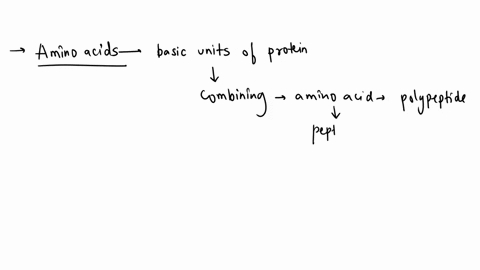 → Amino acids — basic units of protein
↓
Combining → amino acid → polypeptide
↓
pept